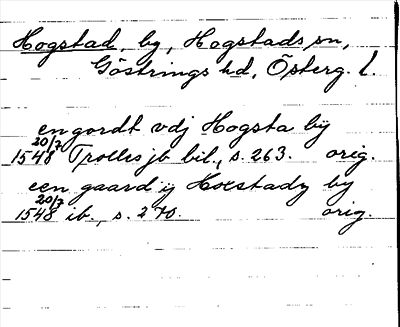 Hogstad, by, Hogstads sn,
Göstrings hd, Österg. l.
en gordt vdj Hogsta by
20/7
1548 Trolles jb bil., s. 263. orig.
een gaard ij Hoestady by
20/7
1548 ib., s. 270. orig.